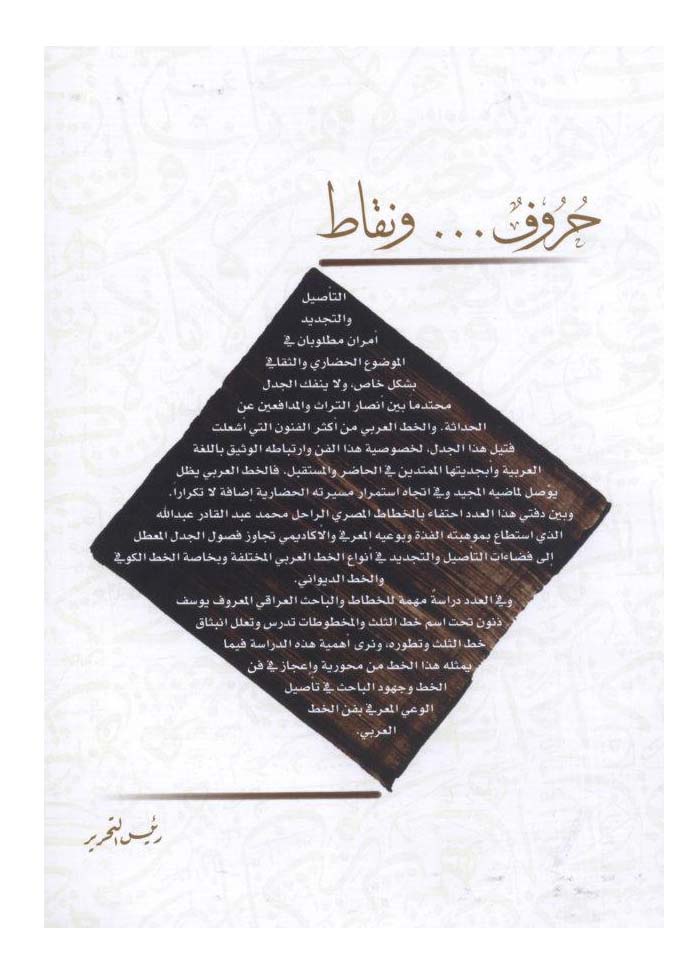 حُرُوفٌ ... ونقاط
التأصيل
والتجديد
أمران مطلوبان في
الموضوع الحضاري والثقافي
بشكل خاص، ولا ينفك الجدل
محتدماً بين أنصار التراث والمدافعين عن
الحداثة. والخط العربي من أكثر الفنون التي أشعلت
فتيل هذا الجدل، لخصوصية هذا الفن وارتباطه الوثيق باللغة
العربية وابجديتها الممتدين في الحاضر والمستقبل. فالخط العربي يظل
يؤصل لماضيه المجيد وفي اتجاه استمرار مسيرته الحضارية إضافة لا تكراراً.
وبين دفتي هذا العدد احتفاء بالخطاط المصري الراحل محمد عبد القادر عبدالله
الذي استطاع بموهبته الفذة وبوعيه المعرفي والاكاديمي تجاوز فصول الجدل المعطل
إلى فضاءات التأصيل والتجديد في أنواع الخط العربي المختلفة وبخاصة الخط الكوفي
والخط الديواني.
وفي العدد دراسة مهمة للخطاط والباحث العراقي المعروف يوسف
ذنون تحت اسم خط الثلث والمخطوطات تدرس وتعلل انبثاق
خط الثلث وتطوره، ونرى أهمية هذه الدراسة فيما
يمثله هذا الخط من محورية وإعجاز في فن
الخط وجهود الباحث في تأصيل
الوعي المعرفي بفن الخط
العربي.
رئيس التحرير